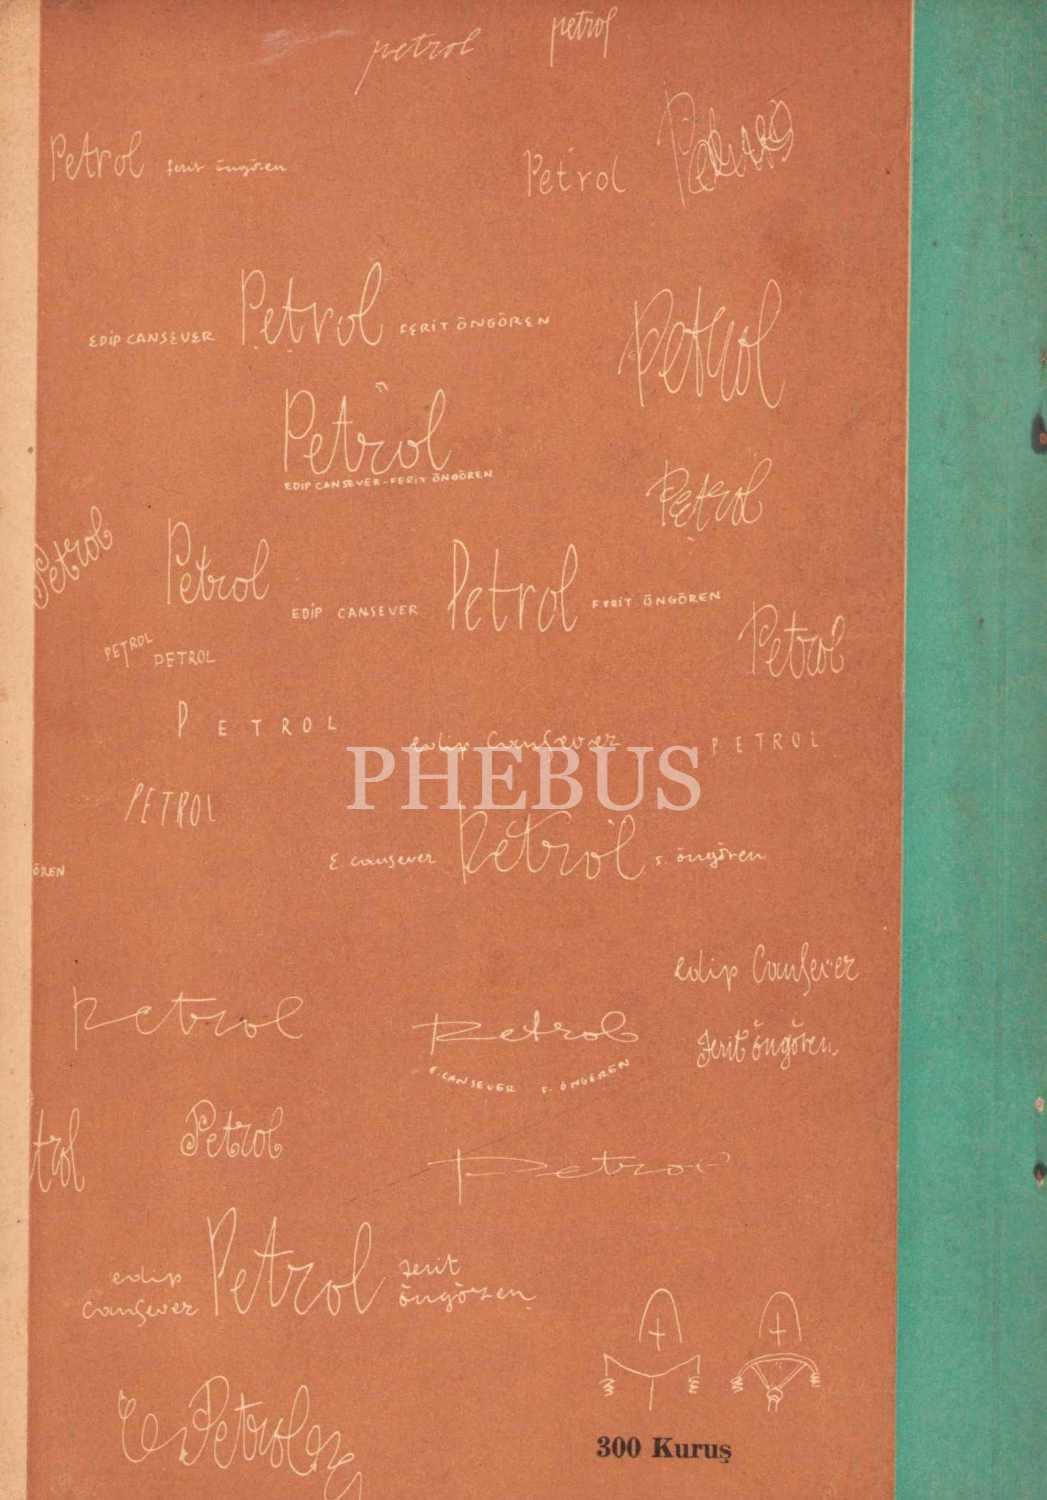 petrol petrol
Petrol ferit öngören
Petrol Petrol
EDİP CANSEVER Petrol FERİT ÖNGÖREN
Petrol
Petrol
EDİP CANSEVER-FERİT ÖNGÖREN
Petrol
Petrol
Petrol
EDİP CANSEVER Petrol FERİT ÖNGÖREN
Petrol
PETROL
PETROL
PETROL
edip Cansever
PETROL
PHEBUS
PETROL
E. cansever Petrol F. öngören
ÖREN
edip Cansever
ferit öngören
Petrol
Petrol
E. CANSEVER F. ÖNGÖREN
trol
Petrol
Petrol
edip
Cansever
Petrol
ferit
öngören
Petrol
300 Kuruş